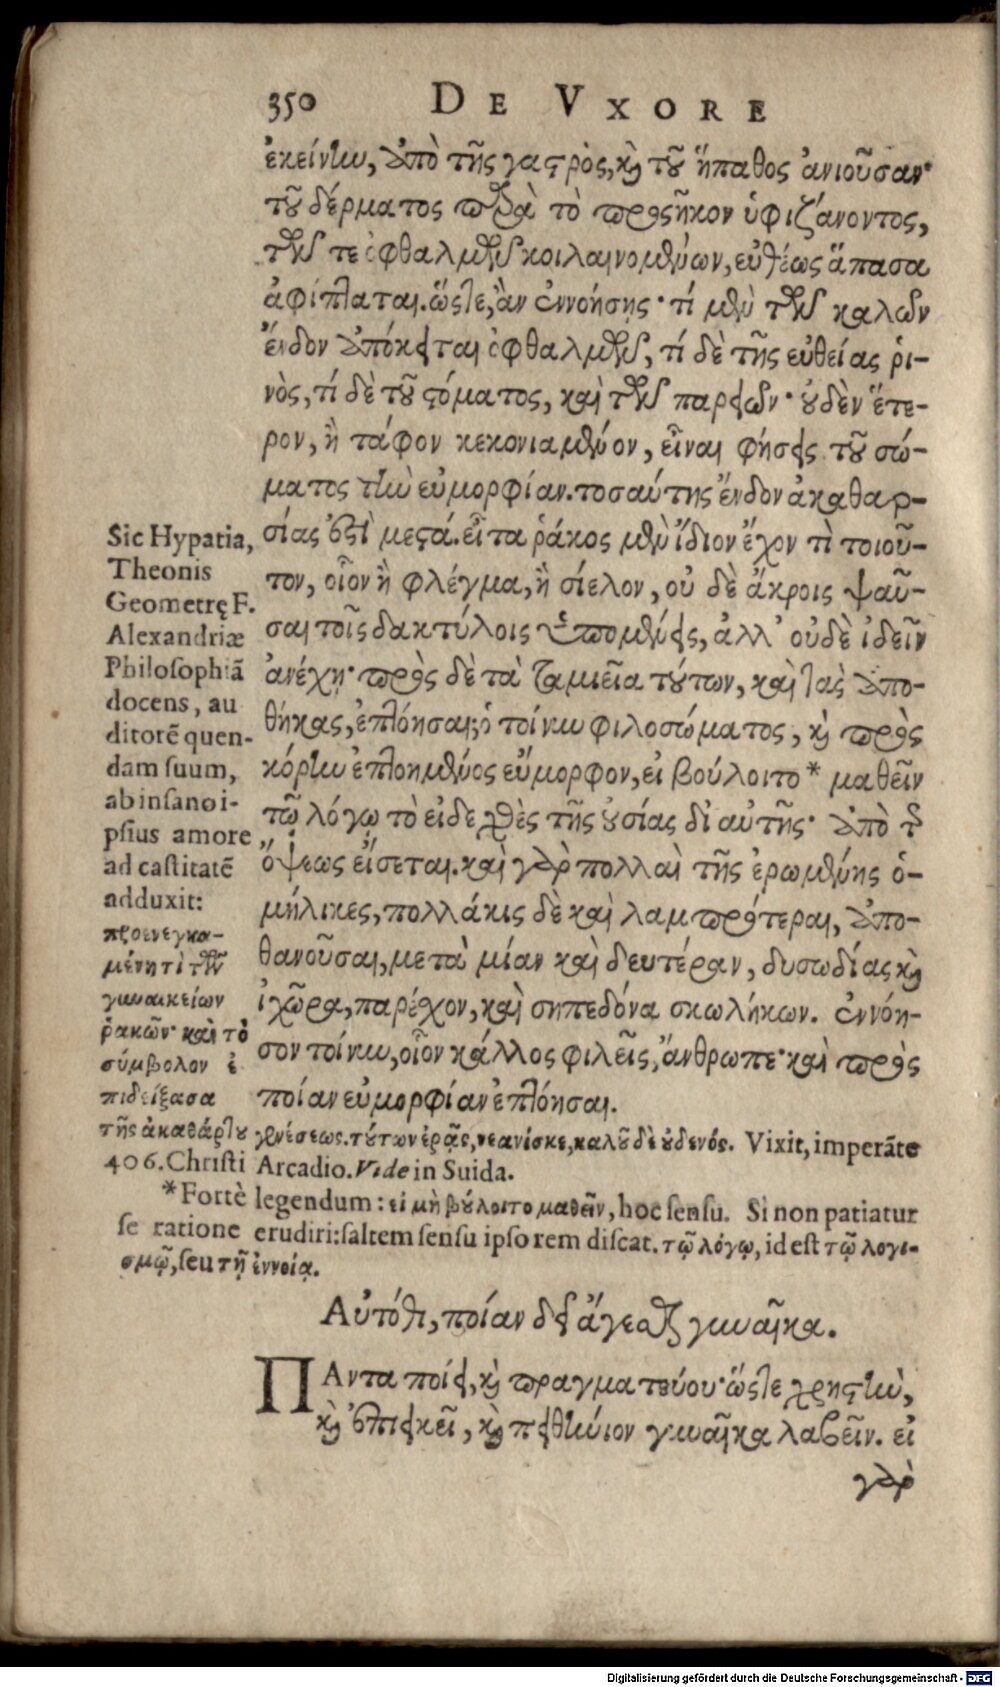 350 DE VXORE
ἐκείνην, ἀπὸ τῆς γαστρὸς, καὶ τοῦ ἥπαθος ἀνιοῦσαν·
τοῦ δέρματος παρὰ τὸ προσῆκον ὑφιζάνοντος,
τῶν τε ὀφθαλμῶν κοιλαινομένων, εὐθέως ἅπασα
ἀφίπταται. ὥστε, ἂν ἐννοήσῃς· τί μὲν τῶν καλῶν
ἔνδον ἀπόκειται ὀφθαλμῶν, τί δὲ τῆς εὐθείας ῥι-
νὸς, τί δὲ τοῦ στόματος, καὶ τῶν παρειῶν· οὐδὲν ἕτε-
ρον, ἢ τάφον κεκονιαμένον, εἶναι φήσεις τοῦ σώ-
ματος τὴν εὐμορφίαν. τοσαύτης ἔνδον ἀκαθαρ-
σίας ἐστὶ μεστά. εἶτα ῥάκος μὲν ἴδιον ἔχον τὶ τοιοῦ-
τον, οἷον ἢ φλέγμα, ἢ σίελον, οὐ δὲ ἄκροις ψαῦ-
σαι τοῖς δακτύλοις ὑπομένεις, ἀλλ' οὐδὲ ἰδεῖν
ἀνέχῃ· πρὸς δὲ τὰ ταμιεῖα τούτων, καὶ τὰς ἀπο-
θήκας, ἐπτόησαι; ὁ τοίνυν φιλοσώματος, καὶ πρὸς
κόρην ἐπτοημένος εὔμορφον, εἰ βούλοιτο* μαθεῖν
τῶ λόγω τὸ εἰδεχθὲς τῆς οὐσίας δι αὐτῆς· ἀπὸ τῆς
„ὄψεως εἴσεται. καὶ γὰρ πολλαὶ τῆς ἐρωμένης ὁ-
μήλικες, πολλάκις δὲ καὶ λαμπρότεραι, ἀπο-
θανοῦσαι, μετὰ μίαν καὶ δευτέραν, δυσωδίας καὶ
ἰχῶρα, παρέχον, καὶ σηπεδόνα σκωλήκων. ἐννόη-
σον τοίνυν, οἷον κάλλος φιλεῖς, ἄνθρωπε· καὶ πρὸς
ποίαν εὐμορφίαν ἐπτόησαι.
Sic Hypatia,
Theonis
Geometrę F.
Alexandriæ
Philosophiā
docens, au
ditorē quen-
dam suum,
ab insano i-
psius amore
ad castitatē
adduxit:
προενεγκα-
μένη τὶ τῶν
γυναικείων
ῥακῶν· καὶ τὸ
σύμβολον ἐ
πιδείξασα
τῆς ἀκαθάρτου γενέσεως. τούτων ἐρᾷς, νεανίσκε, καλοῦ δὲ οὐδενός. Vixit, imperāte
406. Christi Arcadio. Vide in Suida.
*Fortè legendum: εἰ μὴ βούλοιτο μαθεῖν, hoc sensu. Si non patiatur
se ratione erudiri: saltem sensu ipso rem discat. τῷ λόγῳ, id est τῷ λογι-
σμῷ, seu τῇ ἐννοίᾳ.
Αὐτόθι, ποίαν δεῖ ἄγεσθαι γυναῖκα.
ΠΑντα ποίει, καὶ πραγματεύου· ὥστε χρηστὴν,
καὶ ἐπιεικεῖ, καὶ πειθήνιον γυναῖκα λαβεῖν. εἰ
γὰρ
Digitalisierung gefördert durch die Deutsche Forschungsgemeinschaft - DFG